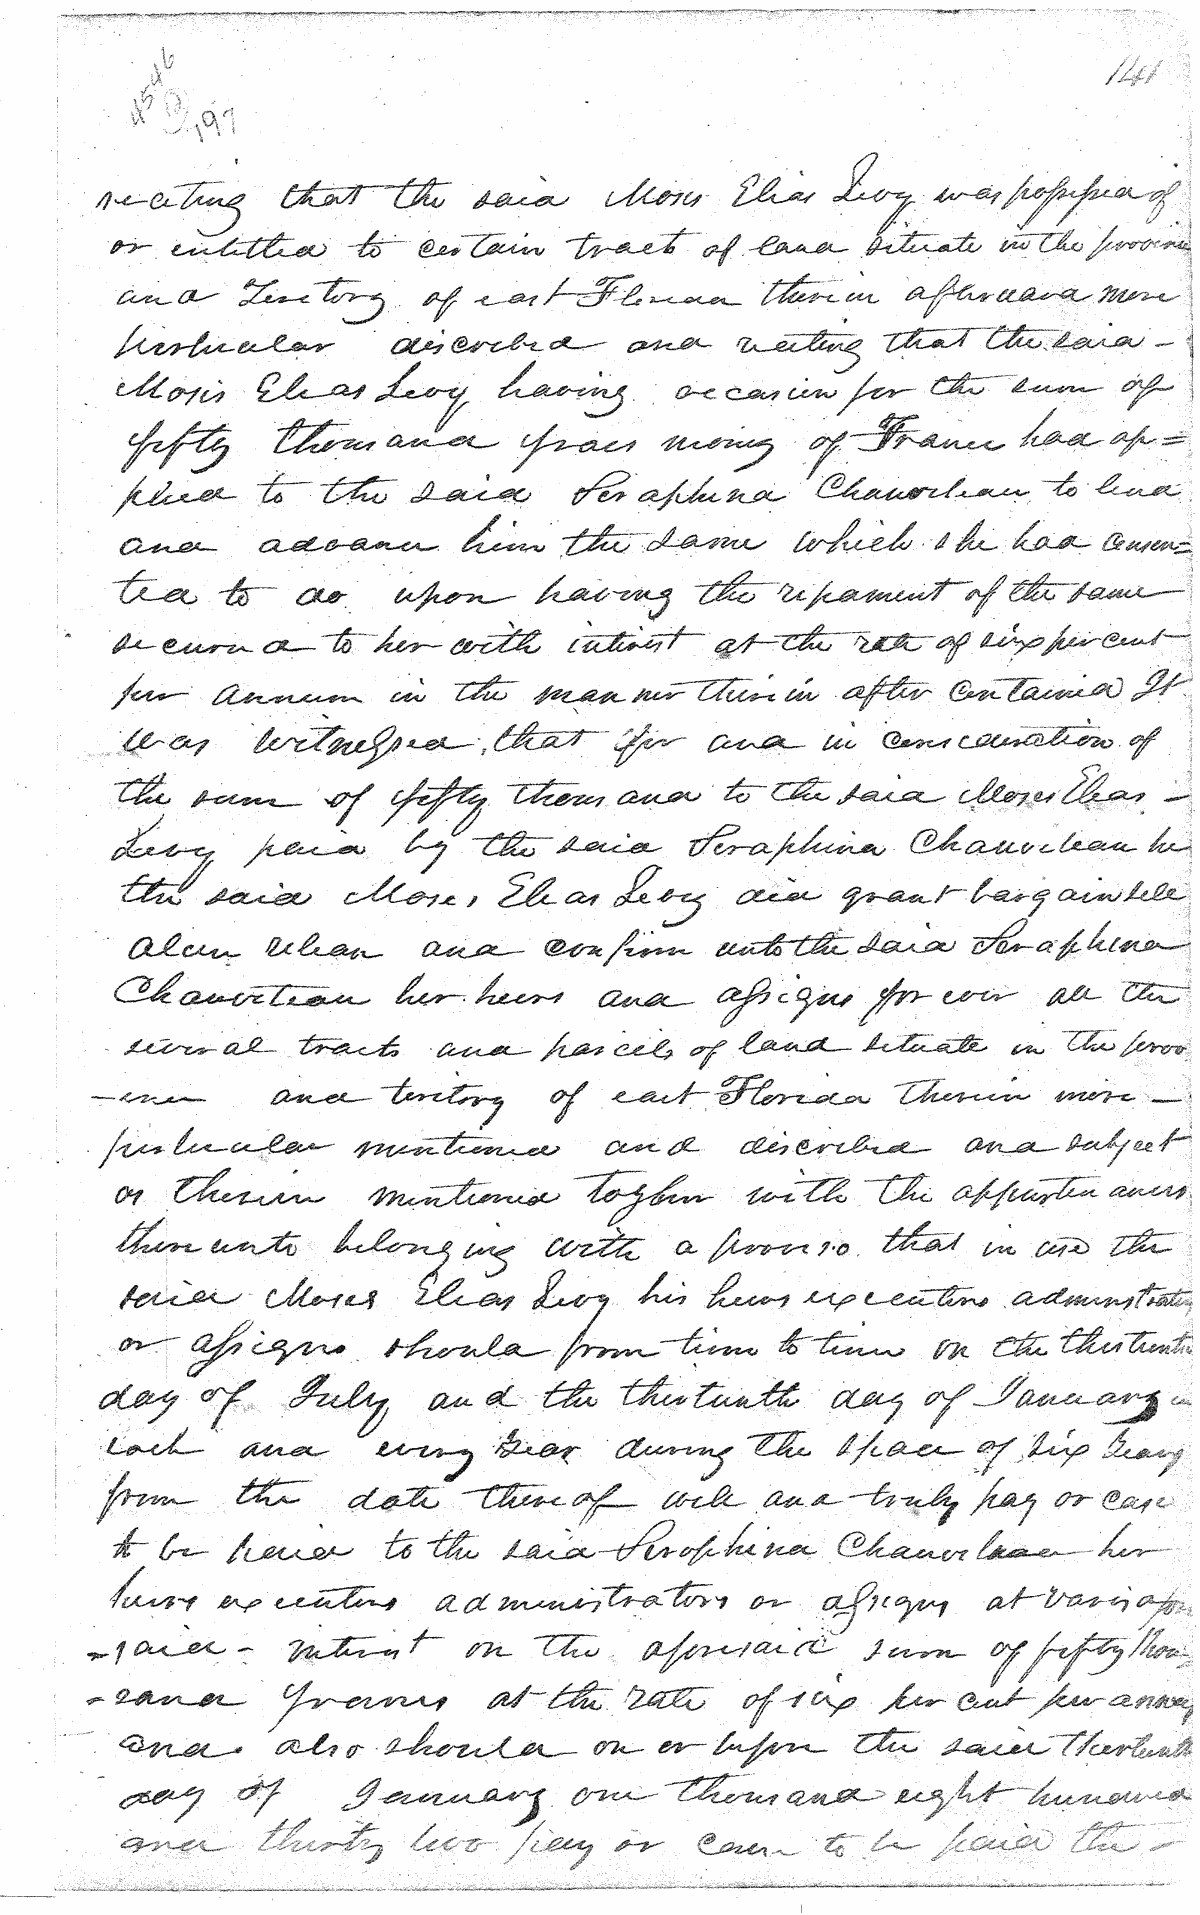 141
4546
reciting that the said Moses Elias Levy was possessed of
or entitled to certain tracts of land situate in the province
and Teritory of east Florida therein afterward more
perticular discribed and reciting that the said -
Moses Elias Levy having occasion for the sum of
fifty thousand fracs mony of France had ap=
plied to the said Seraphina Chauviteau to lend
and advance him the same which she had consen=
ted to do upon having the repament of the same
secured to her with interest at the rate of six per cent
per annum in the manner therein after contained It
was witnessed that for and in consideration of
the sum of fifty thousand to the said Moses Elias -
Levy paid by the said Seraphina Chauviteau he
the said Moses Elias Levy did grant bargain sell
alien relean and confirm unto the said Seraphina
Chauviteau her heirs and assigns for ever all the
several tracts and parcels of land situate in the prov
-ince and teritory of east Florida therein more -
perticular mentioned and discribed and subject
as therein mentioned togther with the appurtenances
thereunto belonging with a proviso that in case the
said Moses Elias Levy his heirs executors administrators
or assigns should from time to time on the thirteenth
day of July and the thirteenth day of January in
each and every year during the space of six years
from the date thereof well and truly pay or case
to be paid to the said Seraphina Chauviteau her
heirs executors administrators or assigns at
=said - interest on the aforesaid sum of fifty thou
=sand francs at the rate of six per cent per annum
and also should on or before the said thirteenth
day of January one thousand eight hundred
and thirty two pay or cause to be paid the -